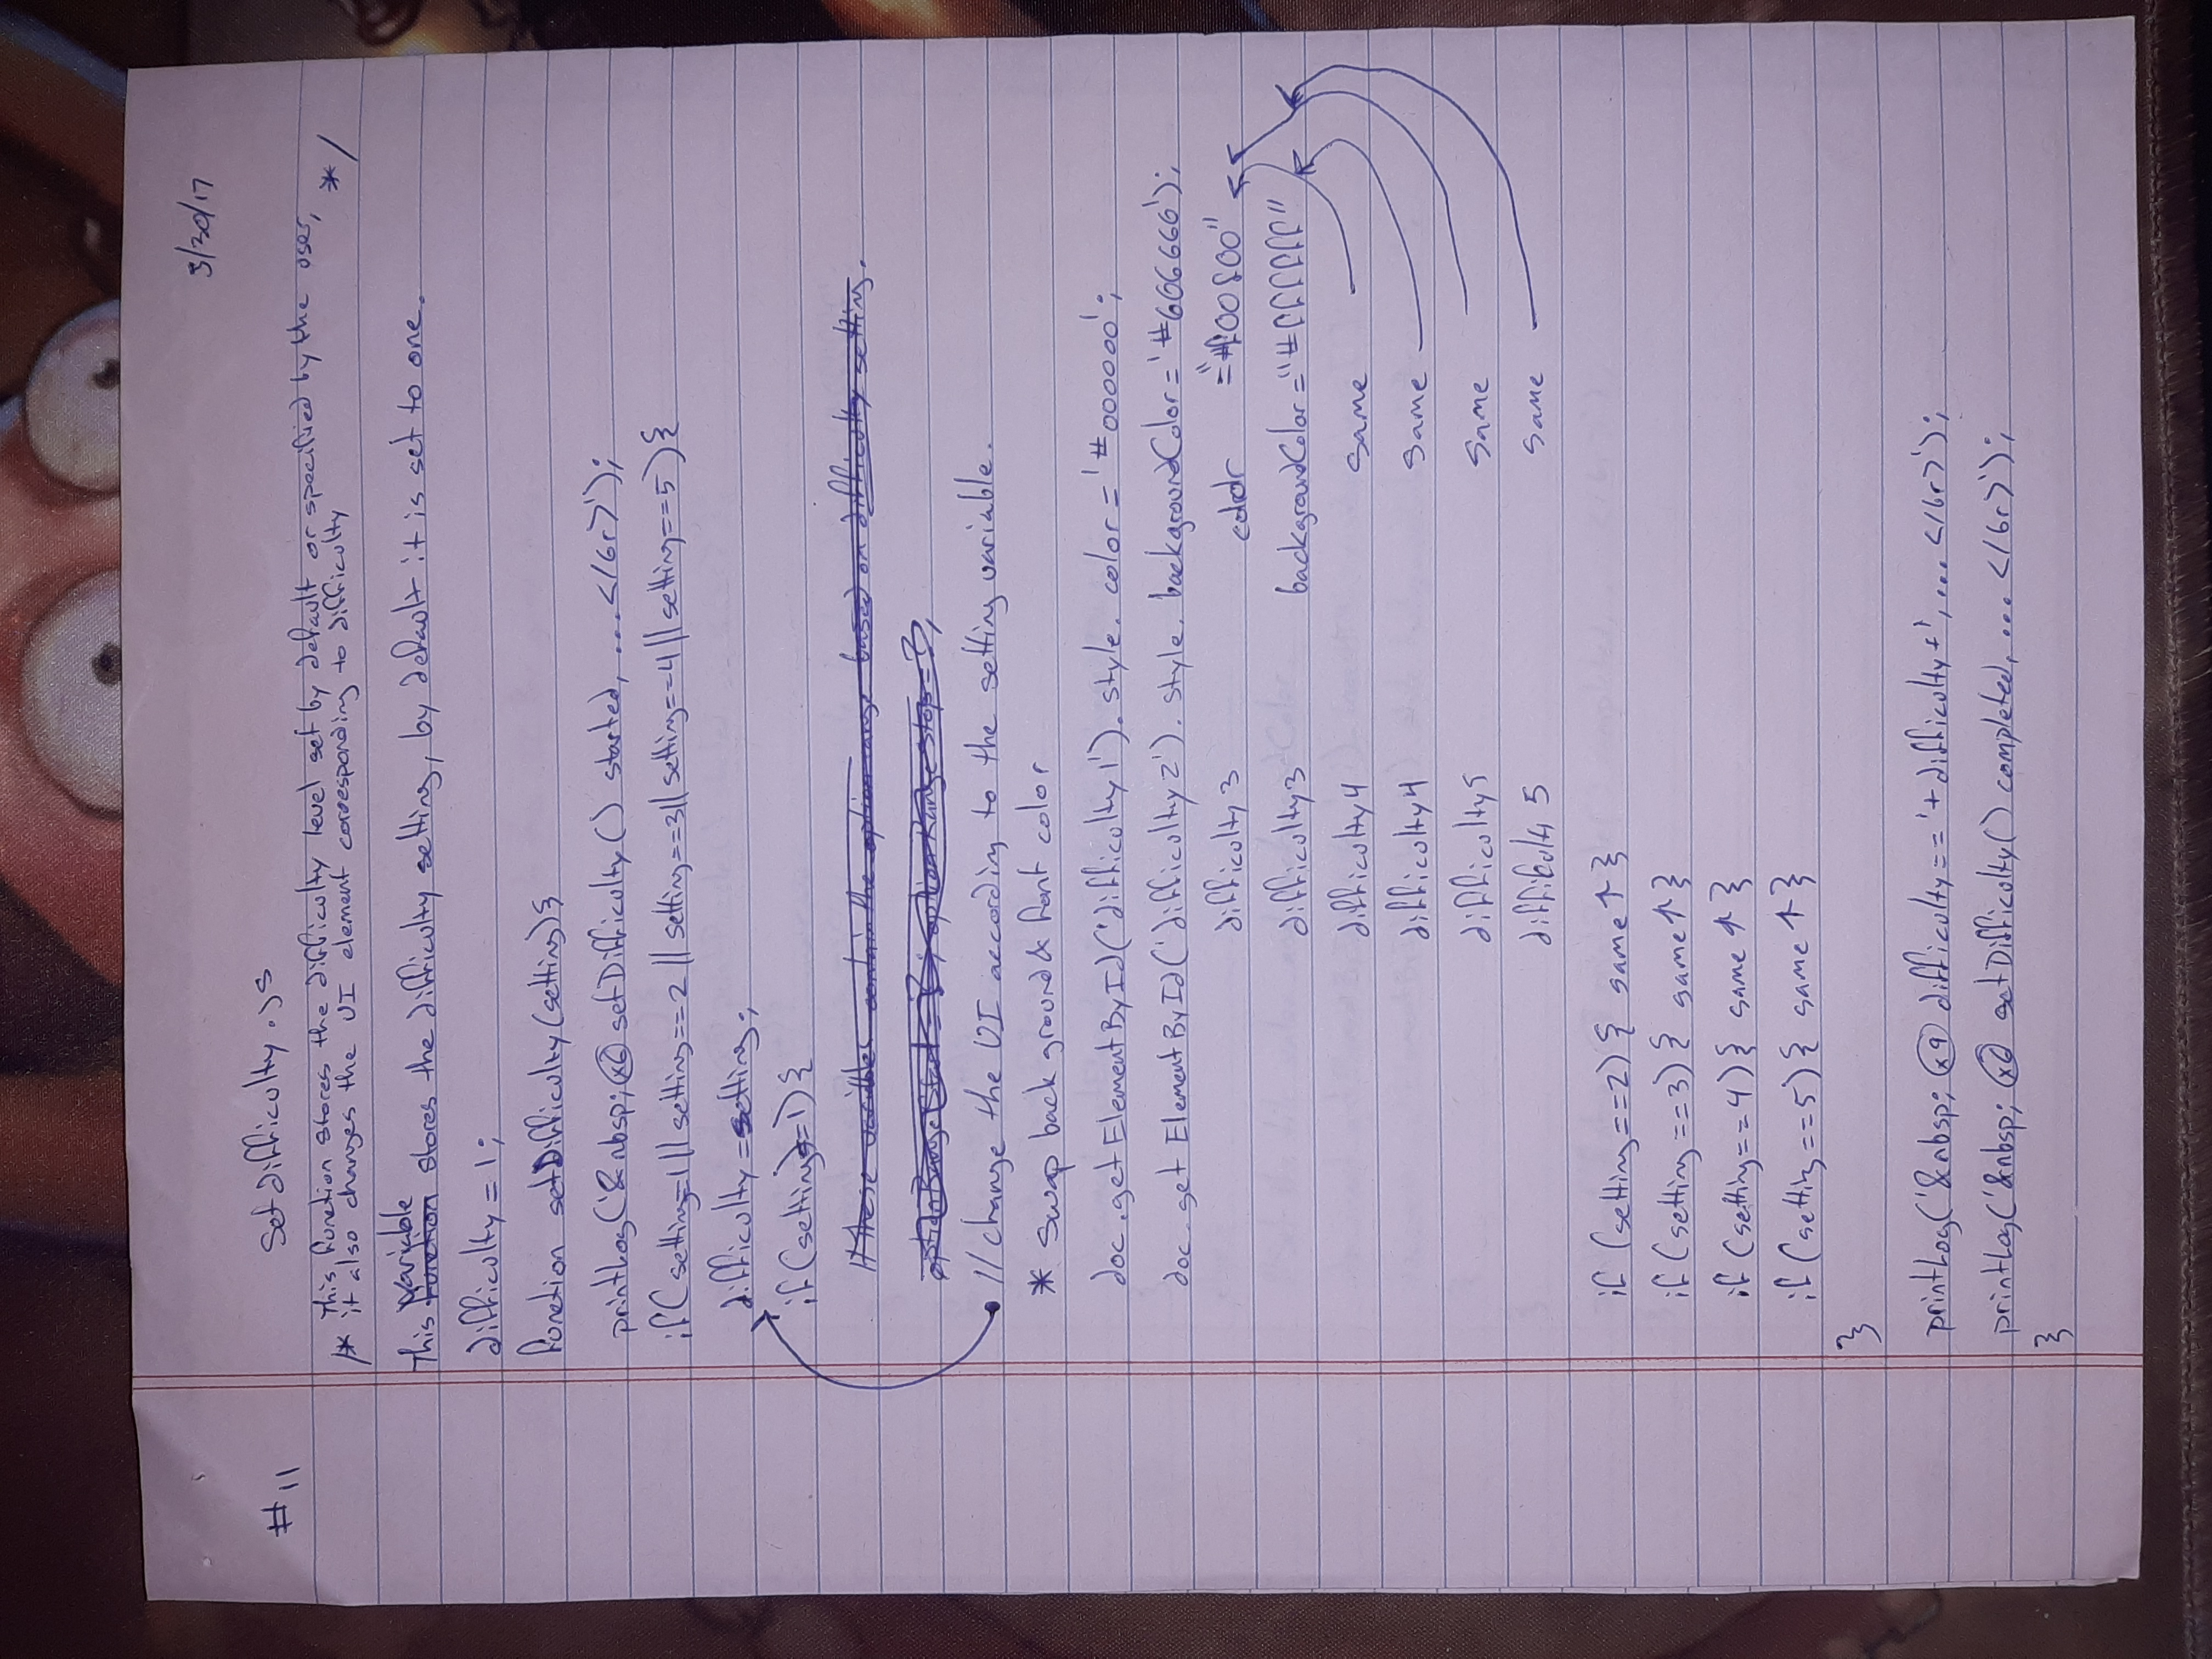 5/30/17
#11 Setdifficulty.js
This function stores the difficulty level set by default or specified by the user,
/* it also changes the UI element corresponding to difficulty */
variable
This function stores the difficulty setting, by default it is set to one.
difficulty = 1;
function setDifficulty(setting){
printLog('&nbsp; x6 setDifficulty() started, ...</br>');
if(setting=1||setting==2||setting==3||setting==4||setting==5){
difficulty=setting;
if(setting==1){
// these variables contain the option range based on difficulty setting.
optionRangeStart = 3; optionRangeStop=3;
// change the UI according to the setting variable.
* Swap back ground & font color
doc.getElementById('difficulty1').style.color='#000000';
doc.getElementById('difficulty2').style.backgroundColor='#606660');
difficulty3 color ="#f00f00"
difficulty3 backgroundColor="#ffffff"
difficulty4 same
difficulty4 same
difficulty5 same
difficulty 5 same
if (setting==2){ same ↑ }
if (setting==3){ same ↑ }
if (setting==4){ same ↑ }
if (setting==5){ same ↑ }
}
printLog('&nbsp; x9 difficulty=='+difficulty+', ...</br>');
printLog('&nbsp; x6 setDifficulty() completed, ...</br>');
}